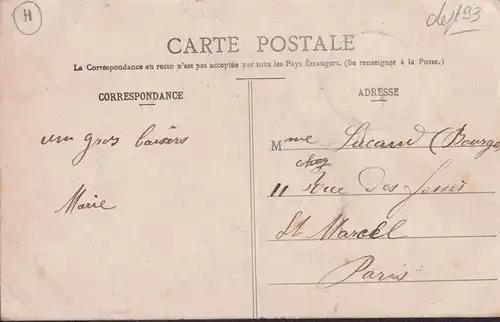 H
dept 93
CARTE POSTALE
La Correspondance au recto n'est pas acceptée par tous les Pays Étrangers. (Se renseigner à la Poste.)
CORRESPONDANCE
un gros baisers
Marie
ADRESSE
Mme Lucand (Bourge
chez
11 Rue Des
St Marcel
Paris